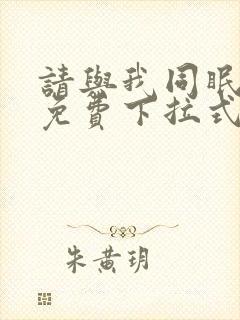 請與我同眠
免費下拉式
朱黄玥